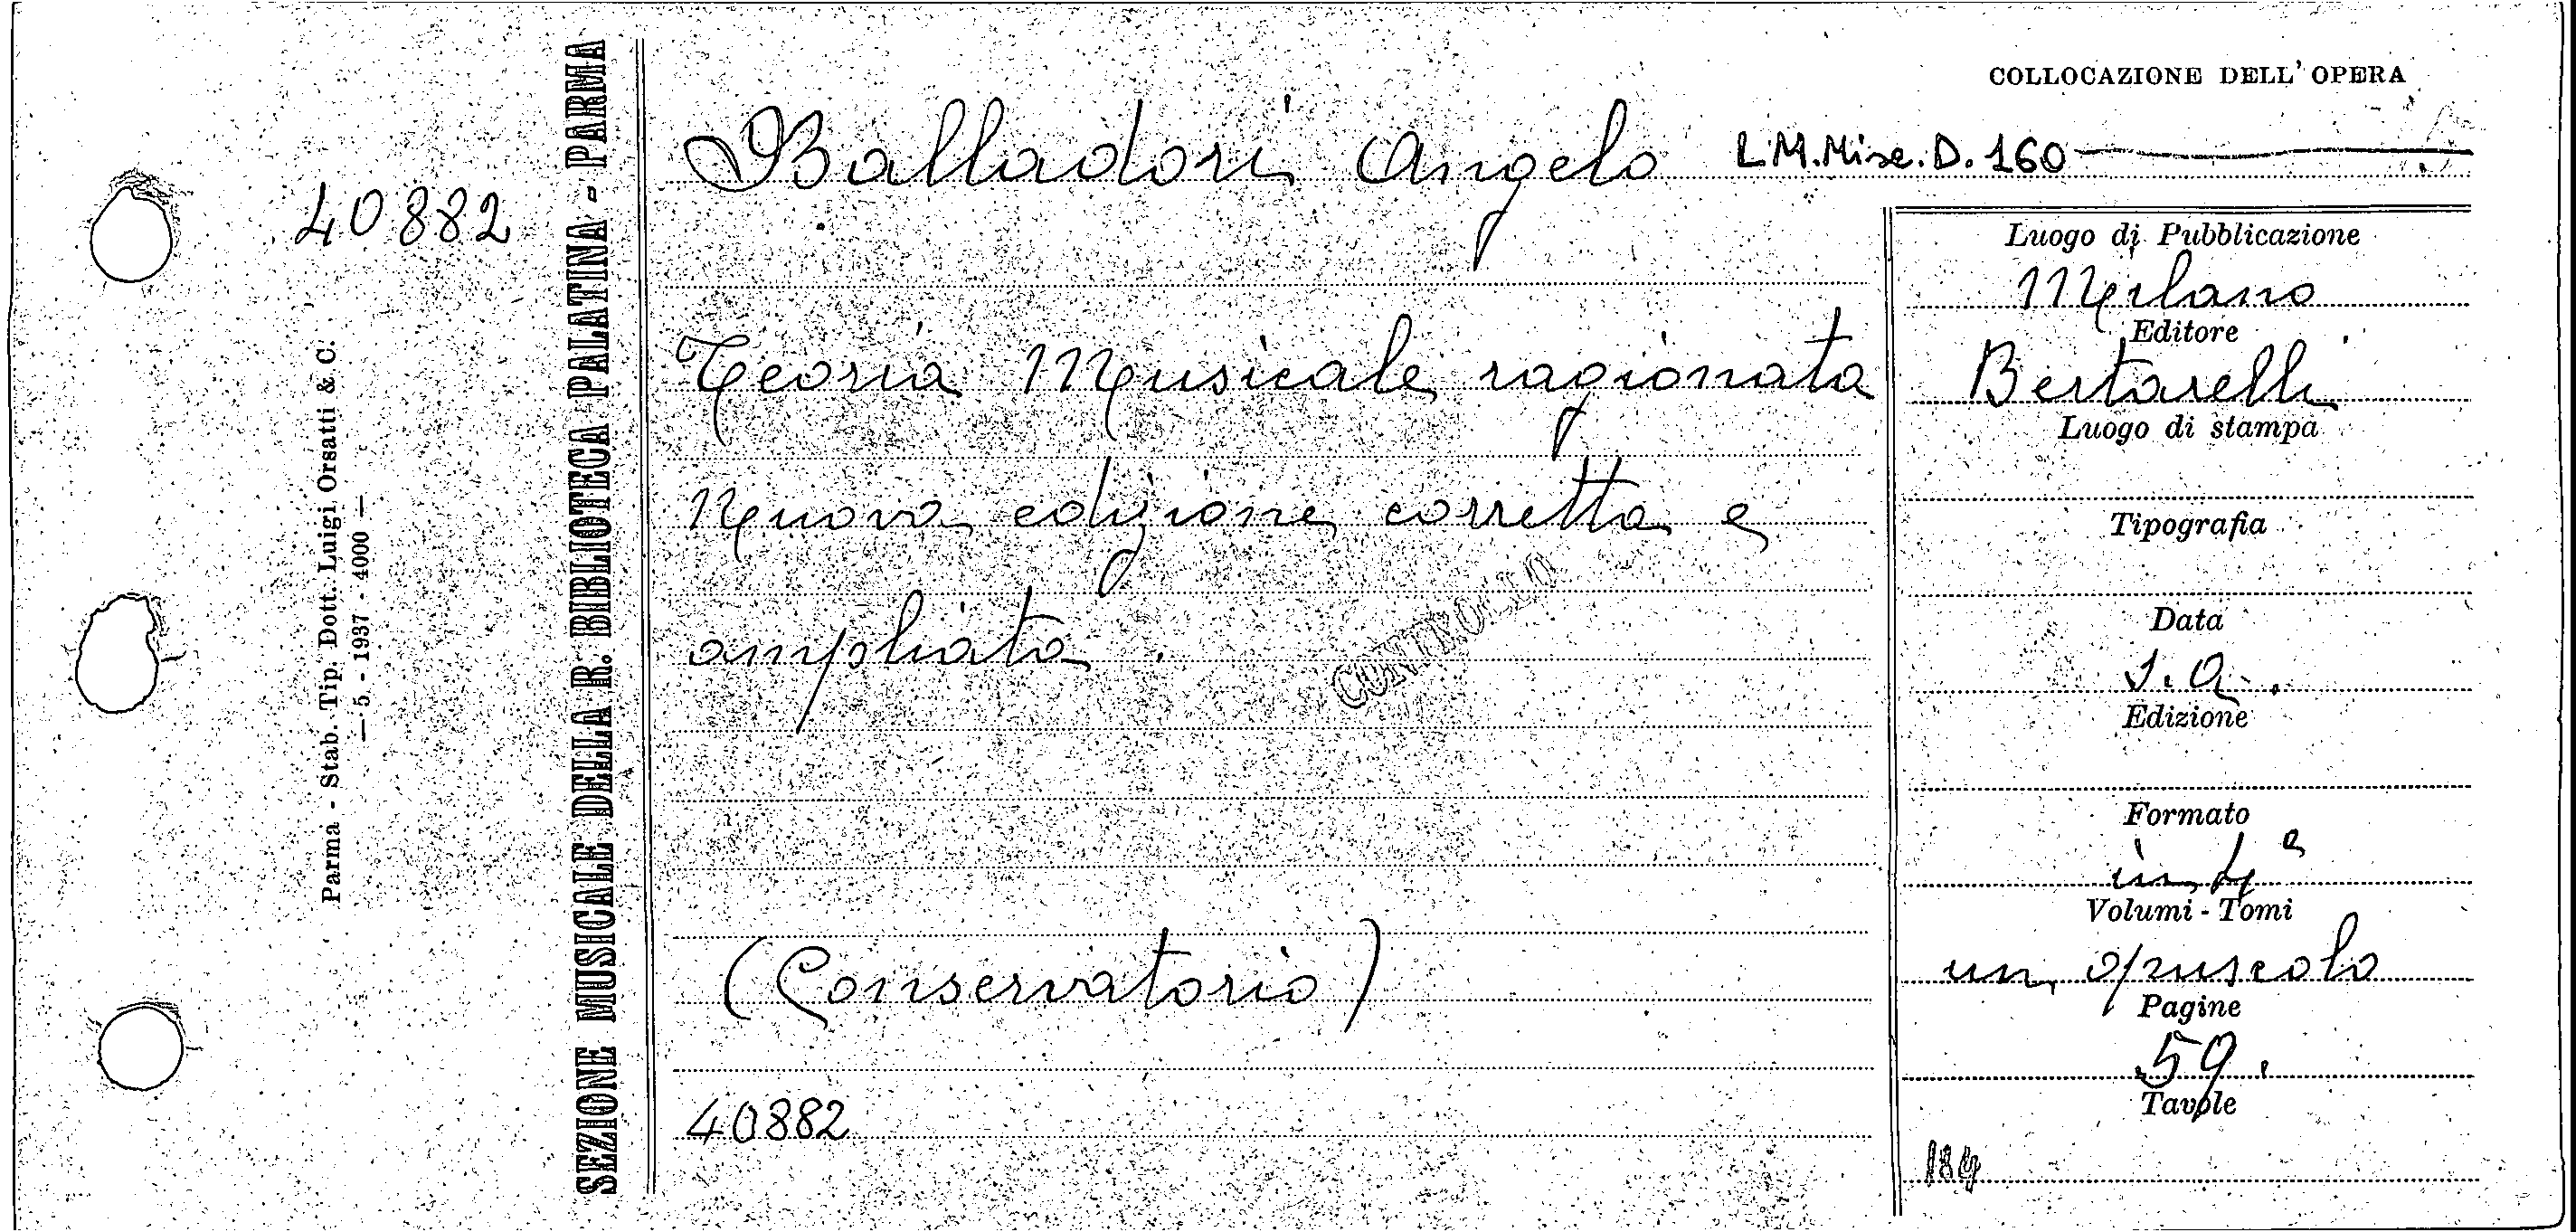 COLLOCAZIONE DELL' OPERA
Balladori Angelo
L.M.Misc.D.160
40882
SEZIONE MUSICALE DELLA R. BIBLIOTECA PALATINA - PARMA
Parma - Stab. Tip. Dott. Luigi Orsatti & C.
— 5 - 1937 - 4000 —
Teoria Musicale ragionata
Nuova edizione corretta e
ampliata.
CONTROLLO
(Conservatorio)
40882
Luogo di Pubblicazione
Milano
Editore
Bertarelli
Luogo di stampa
Tipografia
Data
s.a.
Edizione
Formato
in 4°
Volumi - Tomi
un opuscolo
Pagine
59.
Tavole
184